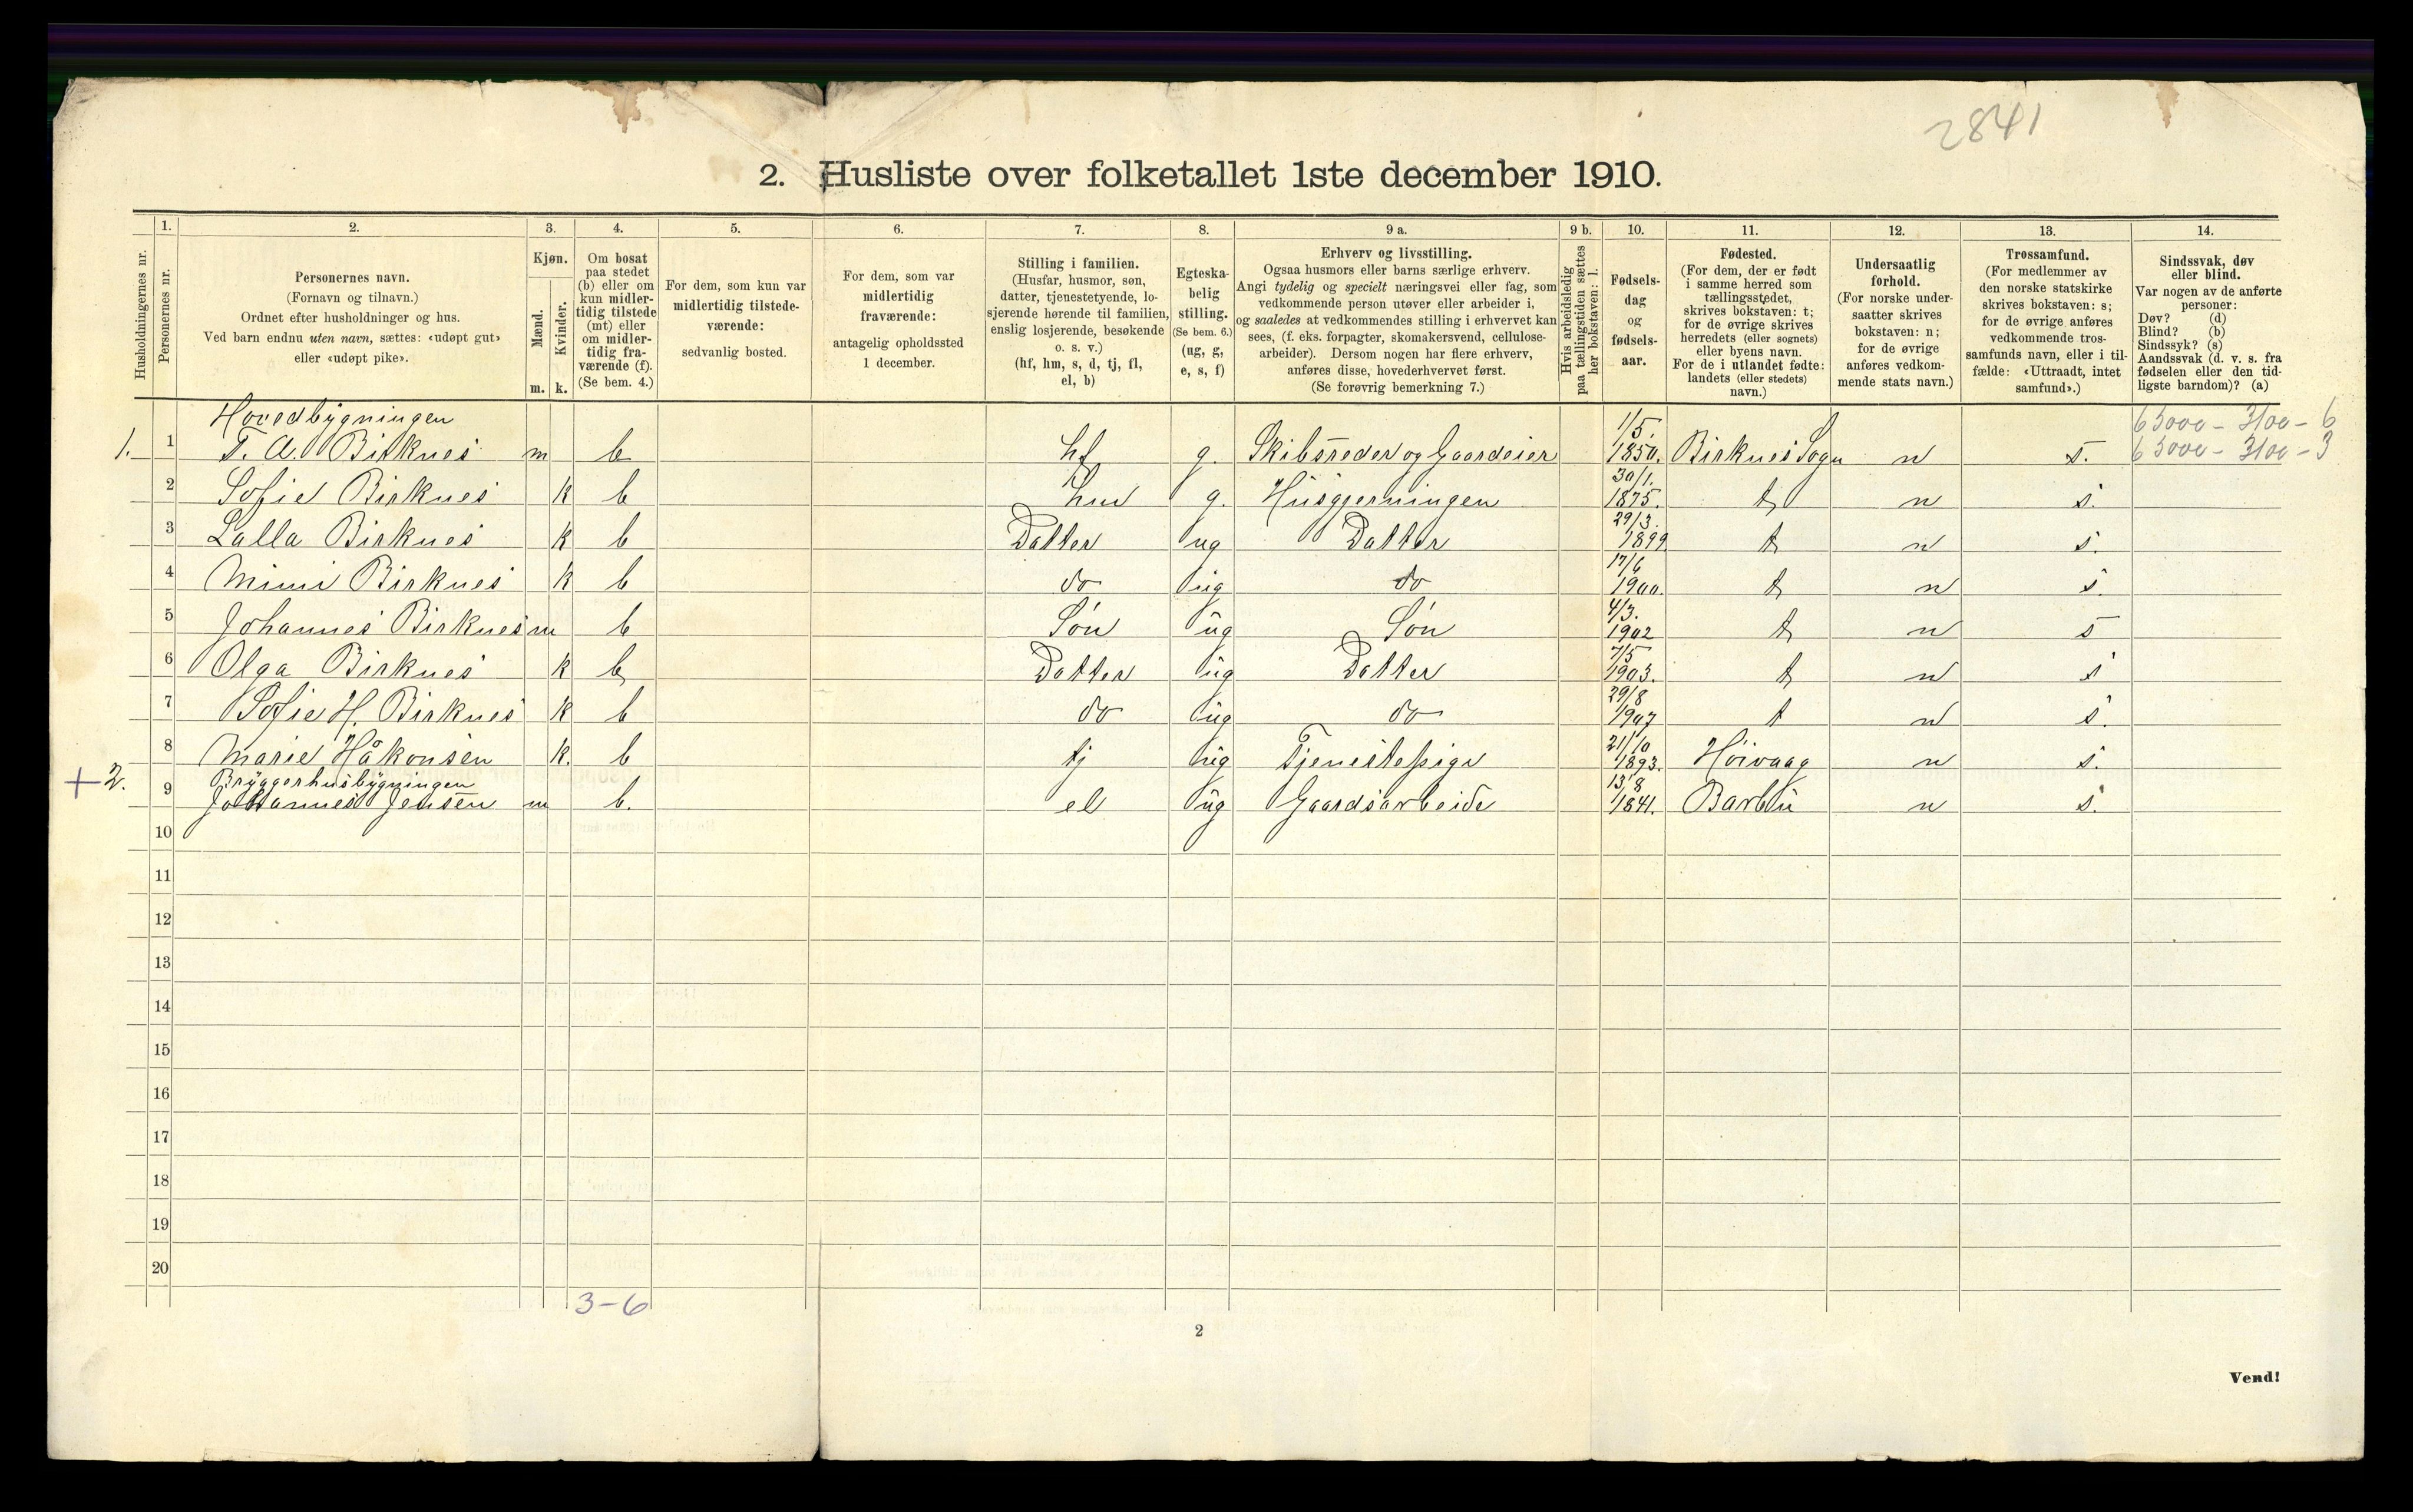 2841
2. Husliste over folketallet 1ste december 1910.
Husholdningernes nr.
1.
Personernes nr.
2.
Personernes navn.
(Fornavn og tilnavn.)
Ordnet efter husholdninger og hus.
Ved barn endnu uten navn, sættes: «udøpt gut»
eller «udøpt pike».
3.
Kjøn.
Mænd.
Kvinder.
m. k.
4.
Om bosat
paa stedet
(b) eller om
kun midler-
tidig tilstede
(mt) eller
om midler-
tidig fra-
værende (f).
(Se bem. 4.)
5.
For dem, som kun var
midlertidig tilstede-
værende:
sedvanlig bosted.
6.
For dem, som var
midlertidig
fraværende:
antagelig opholdssted
1 december.
7.
Stilling i familien.
(Husfar, husmor, søn,
datter, tjenestetyende, lo-
sjerende hørende til familien,
enslig losjerende, besøkende
o. s. v.)
(hf, hm, s, d, tj, fl,
el, b)
8.
Egteska-
belig
stilling.
(Se bem. 6.)
(ug, g,
e, s, f)
9 a.
Erhverv og livsstilling.
Ogsaa husmors eller barns særlige erhverv.
Angi tydelig og specielt næringsvei eller fag, som
vedkommende person utøver eller arbeider i,
og saaledes at vedkommendes stilling i erhvervet kan
sees, (f. eks. forpagter, skomakersvend, cellulose-
arbeider). Dersom nogen har flere erhverv,
anføres disse, hovederhvervet først.
(Se forøvrig bemerkning 7.)
9 b.
Hvis arbeidsledig
paa tællingstiden sættes
her bokstaven: l.
10.
Fødsels-
dag
og
fødsels-
aar.
11.
Fødested.
(For dem, der er født
i samme herred som
tællingsstedet,
skrives bokstaven: t;
for de øvrige skrives
herredets (eller sognets)
eller byens navn.
For de i utlandet fødte:
landets (eller stedets)
navn.)
12.
Undersaatlig
forhold.
(For norske under-
saatter skrives
bokstaven: n;
for de øvrige
anføres vedkom-
mende stats navn.)
13.
Trossamfund.
(For medlemmer av
den norske statskirke
skrives bokstaven: s;
for de øvrige anføres
vedkommende tros-
samfunds navn, eller i til-
fælde: «Uttraadt, intet
samfund».)
14.
Sindssvak, døv
eller blind.
Var nogen av de anførte
personer:
Døv? (d)
Blind? (b)
Sindssyk? (s)
Aandssvak (d. v. s. fra
fødselen eller den tid-
ligste barndom)? (a)
Hovedbygningen 1/5. 65000 - 3100 - 6
1. 1 T. A. Birknes m b hf g. Skibsreder og Gaardeier 1850. Birknes Sogn n s. 65000 - 3100 - 3
30/1.
2 Sofie Birknes k b hm g. Husgjerningen 1875. t n s.
29/3.
3 Lalla Birknes k b Datter ug Datter 1899 t n s.
17/6
4 Mimi Birknes k b do ug do 1900. t n s.
4/3.
5 Johannes Birknes m b Søn ug Søn 1902 t n s
7/5
6 Olga Birknes k b Datter ug Datter 1903. t n s
29/8
7 Sofie H. Birknes k b do ug do 1907 t n s.
21/10
8 Marie Håkonsen k. b tj ug Tjenestepige 1893. Høivaag n s.
+ 2. Bryggerhusbygningen 13/8
9 Johannes Jensen m b. el ug Gaardsarbeide 1841. Barbu n s.
10
11
12
13
14
15
16
17
18
19
20
3-6
2
Vend!